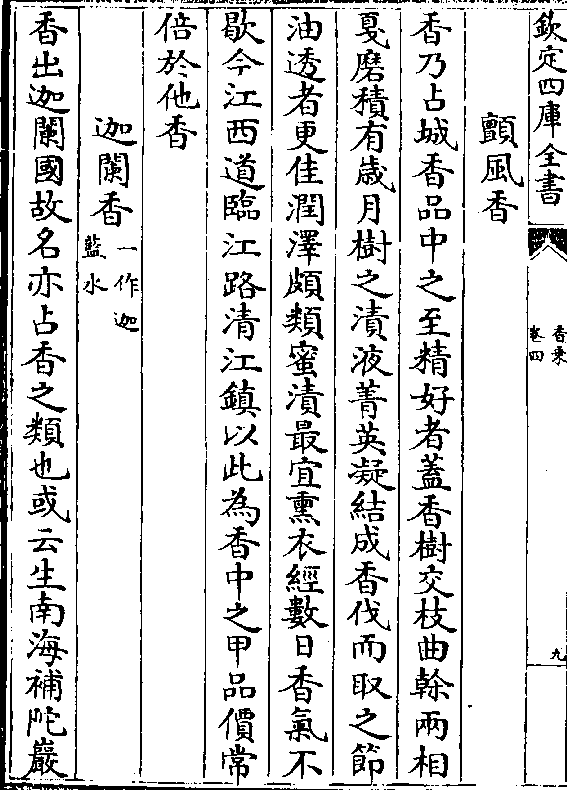 欽定四庫全書
香乘
卷四
九
顫風香
香乃占城香品中之至精好者蓋香樹交枝曲榦兩相
戛磨積有歲月樹之漬液菁英凝結成香伐而取之節
油透者更佳潤澤頗類蜜漬最宜熏衣經數日香氣不
歇今江西道臨江路清江鎮以此為香中之甲品價常
倍於他香
迦闌香
一作迦
藍水
香出迦闌國故名亦占香之類也或云生南海補陀巖